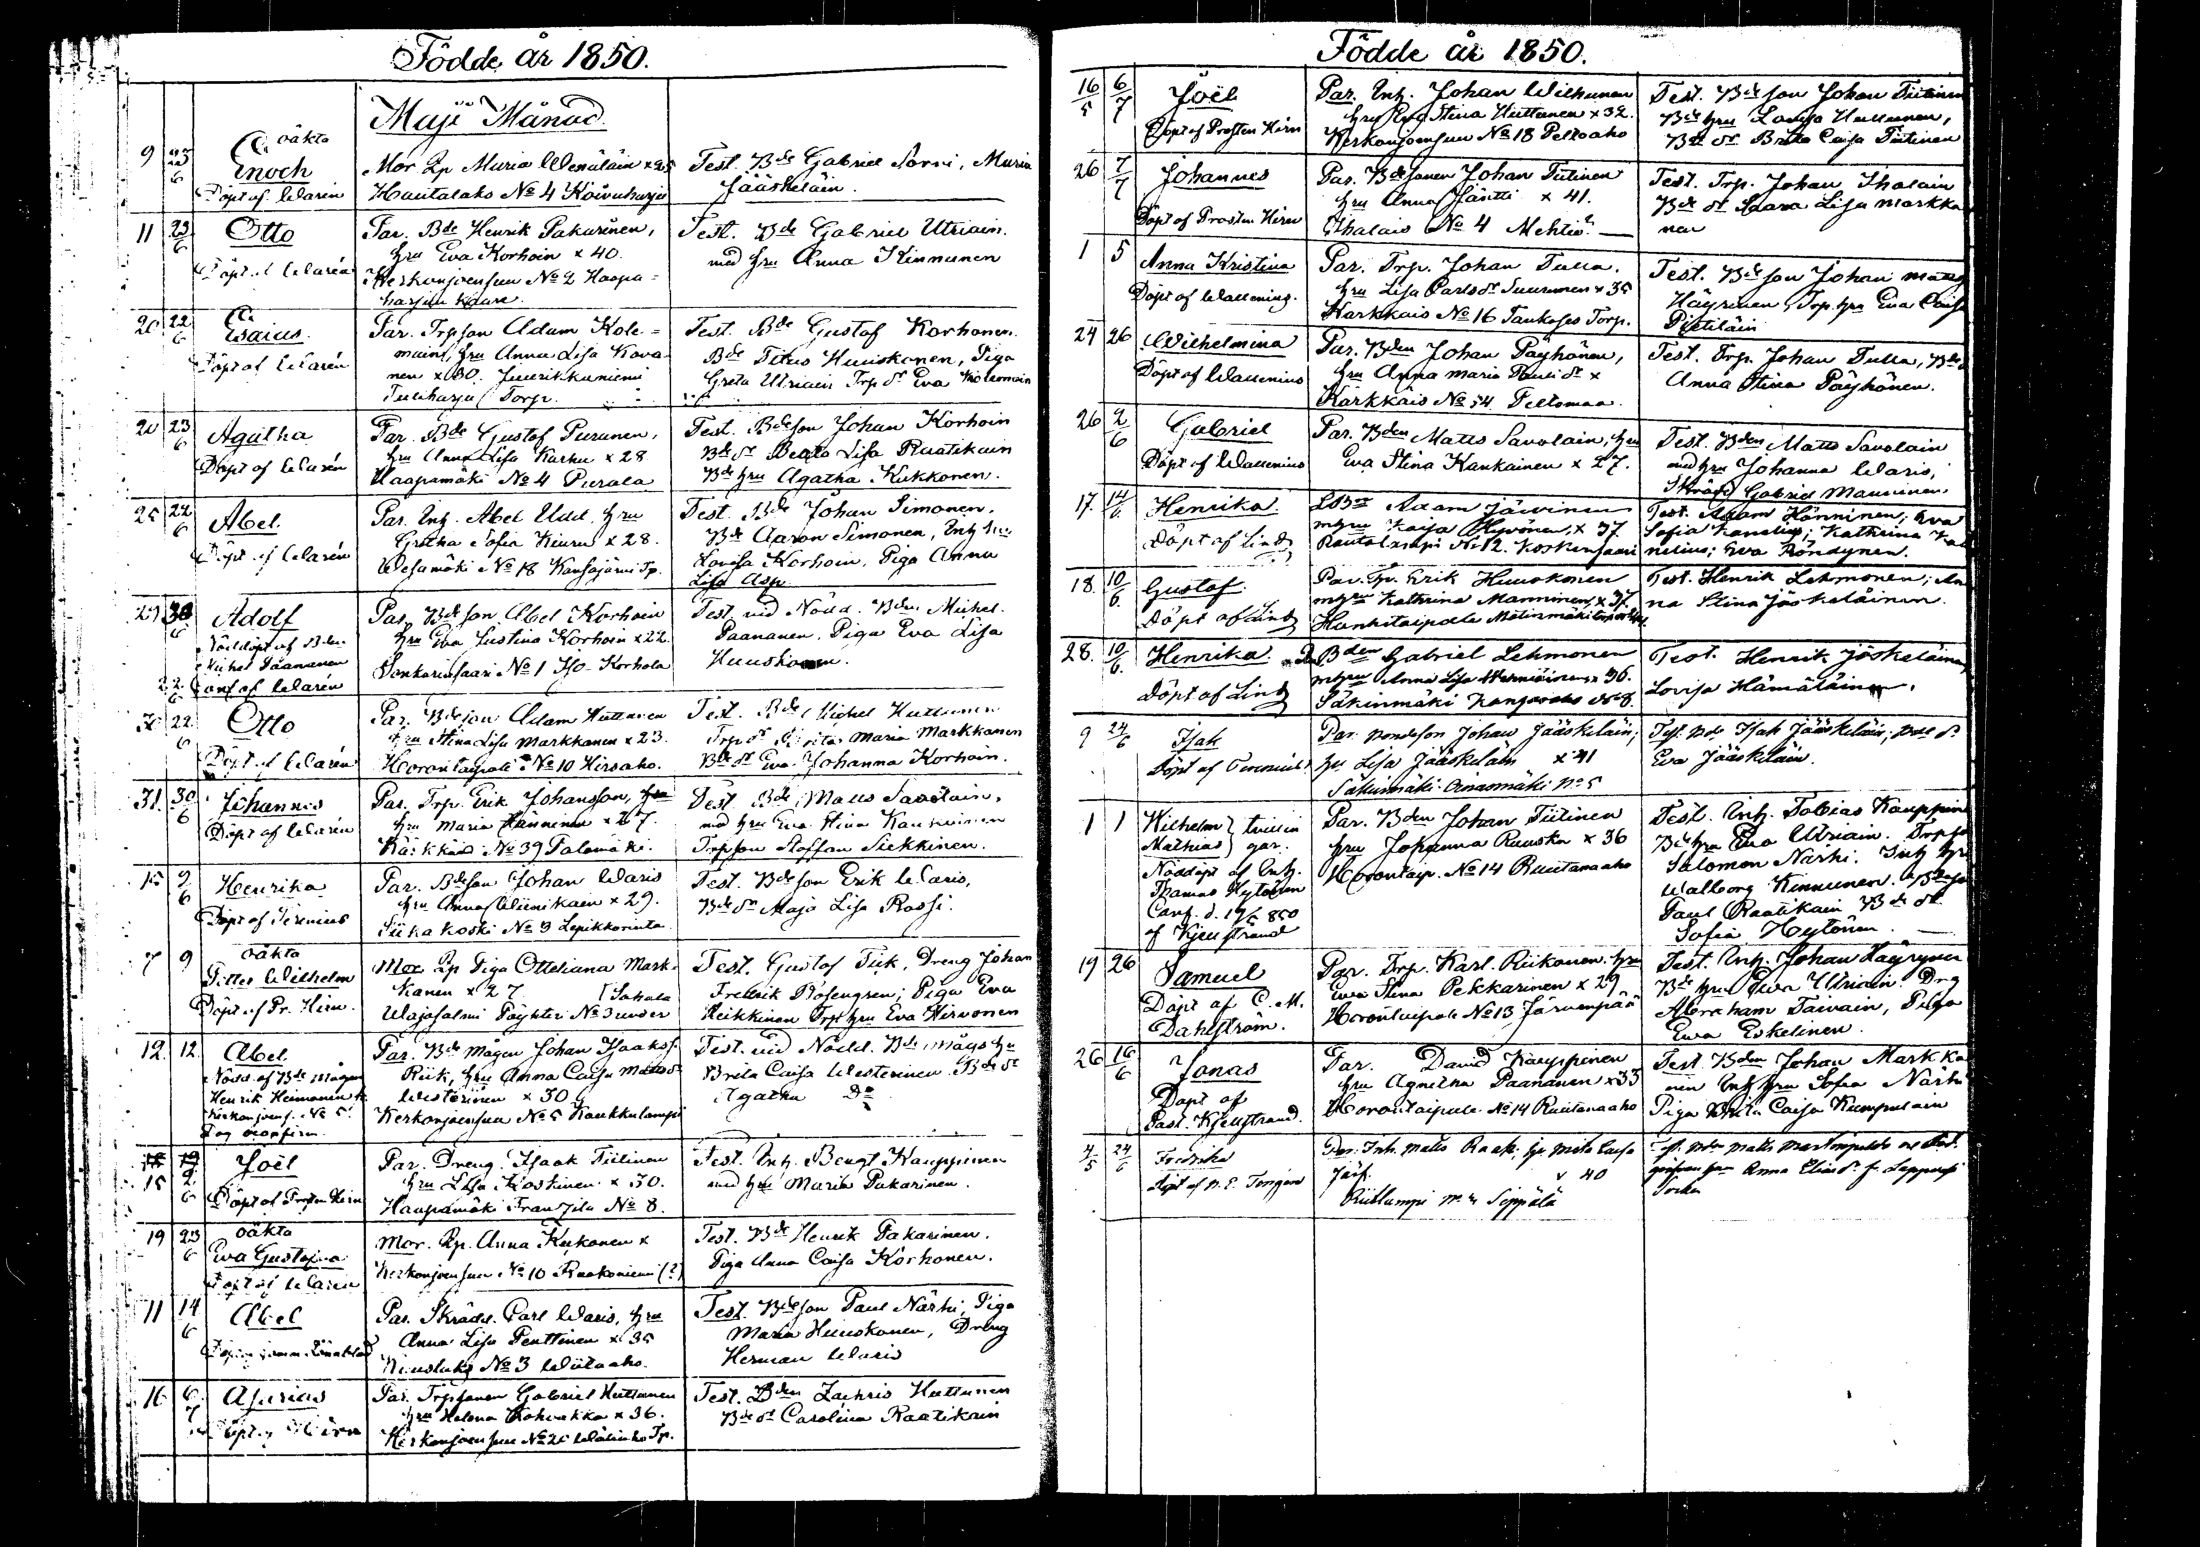 Födde år 1850.
Maji Månad.
9 23/6 oäkta
Enoch
Döpt af Warén
Mor Lp Maria Wenäläin x 25
Hautalaks No 4 Koivuharju
Test. Bde Gabriel Sorri, Maria
Jääskeläin.
11 23/6 Otto
Döpt af Warén
Par. Bde Henrik Pakarinen,
hru Eva Korhoin x 40.
Kerkonjoensuu No 2 Haapa-
harju
Test. Bde Gabriel Utriain.
med hru Anna Kinnunen
20 22/6 Esaias.
Döpt af Warén
Par. Trpson Adam Kole-
main, hru Anna Lisa Kova-
nen x 30.
Torp.
Test. Bde Gustaf Korhonen.
Bde Titus Huuskonen, Piga
Greta Utriain Trp dr Eva Kolemain
20 23/6 Agatha
Döpt af Warén
Par. Bde Gustaf Puranen,
hru Anna Lisa Karhu x 28
Haapamäki No 4 Purala
Test. Bdeson Johan Korhoin
Bde dr Beata Lisa Raatikain
Bde hru Agatha Kukkonen.
25 22/6 Abel.
Döpt af Warén
Par. Inh. Abel Udd, hru
Gretha Sofia Kiuru x 28.
Wesamäki No 18 Kansajärvi Tp.
Test. Bde Johan Simonen,
Bde Aaron Simonen, Inh hru
Lovisa Korhoin, Piga Anna
Lisa Asp
29 30/6 Adolf
Nöddöpt af Bden
Michel Paananen
Conf af Warén
Par. Bdeson Abel Korhoin
hru Eva Justina Korhoin x 22.
Sonkarinsaari No 1 Iso-Korhola
Test. vid Nödd. Bden Michel
Paananen. Piga Eva Lisa
Huuskonen.
30 22/6 Otto
Döpt af Warén
Par. Bdeson Adam Huttunen
hru Stina Lisa Markkanen x 23.
Horontaipale No 10 Hirsaho.
Test. Bde Michel Huttunen
Trp dr Brita Maria Markkanen
Bde dr Eva Johanna Korhoin.
31. 30/6 Johannes
Döpt af Warén
Par. Trp. Erik Johansson,
hru Maria Hänninen x 27
Kärkkäis No 39 Talomäki.
Test. Bde Matts Savolain.
med hru Eva Stina Kankainen
Trpson Staffan Siekkinen.
15 9/6 Henrika
Döpt af Perenius
Par. Bdeson Johan Waris
hru Anna Wiinikain x 29.
Siikakoski No 9 Lepikkorinta
Test. Bdeson Erik Waris,
Bde dr Maja Lisa Rossi.
7 9 oäkta
Petter Wilhelm
Döpt af Pr. Hirn.
Mor Lp Piga Otteliana Mark-
kanen x 27
Wajasalmi Päyhter No 3 under Sahala
Test. Gustaf Tiik, Dreng Johan
Fredrik Rosengren; Piga Eva
Heikkinen Trp hru Eva Hirvonen
12. 12. Abel
Nödd. af Bde mågen
Henrik Heimonen
Kerkonjoens. No 5.
Par. Bde Mågen Johan Isaakss.
Riik, hru Anna Caisa Matts dr
Westerinen x 30
Kerkonjoensuu No 5 Kaukkulampi
Test. vid Nödd. Bde mågs hru
Brita Caisa Westerinen. Bde dr
Agatha Do
15 9/6 Joël
Döpt af Prosten Hirn
Par. Dreng. Isaak Tiitinen
hru Lisa Koskinen x 30.
Haapamäki Franzila No 8.
Test. Inh. Bengt Kauppinen
med hru Maria Pakarinen.
19 23/6 oäkta
Eva Gustafva
Döpt af Warén
Mor. Lp. Anna Kukonen x
Kerkonjoensuu No 10 Raakoniemi (?)
Test. Bde Henrik Pakarinen.
Piga Anna Caisa Korhonen.
11 14/6 Abel
Par. Skrädd. Carl Waris, hru
Anna Lisa Penttinen x 35
No 3 Wiitaaho.
Test. Bdeson Paul Närhi, Piga
Maria Huuskonen, Dreng
Herman Waris
16 6/7 Asarias
Döpt af Hirn
Par. Trpsonen Gabriel Huttunen
hru Helena Kohvakka x 36.
Kerkonjoensuu No 21 Wäliaho Tp.
Test. Bden Zachris Huttunen
Bde dr Carolina Raatikain
Födde år 1850.
16/5 6/7 Joël
Döpt af Prosten Hirn
Par. Inh. Johan Wilhunen
hru Eva Stina Huttunen x 32.
Kerkonjoensuu No 18 Peltoaho
Test. Bdeson Johan Tiitinen
Bde hru Lovisa Huttunen,
Bde dr Brita Caisa Tiitinen
26 7/7 Johannes
Döpt af Prosten Hirn
Par. Bdesonen Johan Tiitinen
hru Anna Jäntti x 41.
Ihalais No 4 Mehtiö?
Test. Trp. Johan Ihalain
Bde dr Saara Lisa Markka
nen
1 5 Anna Kristina
Döpt af Wallening.
Par. Trp. Johan Tulla.
hru Lisa Carls dr Suuronen x 35
Karkkais No 16 Taukases Torp.
Test. Bdeson Johan Matts
Häyrinen, Trp. hru Eva Caisa
Pietiläin
24 26 Wilhelmina
Döpt af Wallenius
Par. Bden Johan Päyhönen,
hru Anna Maria Pauli dr x
Kärkkäis No 54 Peltomaa.
Test. Trp. Johan Tulla, Bde
Anna Stina Päyhönen.
26 2/6 Gabriel
Döpt af Wallenius
Par. Bden Matts Savolain, hru
Eva Stina Kankainen x 27.
Test. Bden Matts Savolain
med hru Johanna Waris,
Skrädd. Gabriel Manninen.
17. 14/6. Henrika.
Döpt af Lind
Adam Järvinen
mhru Kaisa Hyvönen, x 37.
Rautalampi No 12. Koskensaari
Test. Adam Hänninen; Eva
Sofia Kanelius; Kathrina Ka
nelius; Eva Röndynen.
18. 10/6. Gustaf.
Döpt af Lind
Par. Tp. Erik Huuskonen
mhru Kathrina Manninen, x 37.
Hankitaipale Mätinmäki
Test. Henrik Lehmonen; An
na Stina Jäskeläinen.
28. 10/6. Henrika
Döpt af Lind
Bden Gabriel Lehmonen
mhru Anna Lisa x 36.
Säkinmäki Kangasaho No 8.
Test. Henrik Jäskeläinen,
Lovisa Hämäläinen.
9 24/6 Isak
Döpt af Perenius
Par: Bondeson Johan Jääskeläin;
hu Lisa Jääskeläin x 41
Säkinmäki No 5
Test. Bde Isak Jääskeläin; Bde dr
Eva Jääskeläin.
1 1 Wilhelm } tvillin
Mathias } gar.
Nöddöpt af Inh.
Thomas Hytönen
Conf. d. 19/5 850
af Kjellstrand
Par. Bden Johan Tiitinen
hru Johanna Ruuska x 36
Horontaip. No 14 Ruutanaaho
Test. Inh. Tobias Kauppin
Bde hru Eva Utriain. Trpson
Salomon Närhi. Inh hru
Walborg Kinnunen. Bdeson
Paul Raatikain Bde dr
Sofia Hytönen.
19 26 Samuel
Döpt af C. M.
Dahlström.
Par. Trp. Karl. Riikonen. hru
Ewa Stina Pekkarinen x 29
Horontaipale No 13 Järvenpää
Test. Inh. Johan Häyrynen
Bde hru Ewa Utriain. Drg
Abraham Taivain, Piga
Ewa Eskelinen.
26 16/6 Jonas
Döpt af
Past. Kjellstrand.
Par. David Kauppinen
hru Agnetha Paananen x 33
Horontaipale No 14 Ruutanaaho
Test. Bden Johan Markka
nen Inh hru Sofia Närhi
Piga Brita Caisa Kumpulain
4/5 24/6 Fredrika
Par. Inh. Matts Raak: hu Brita Caisa
x 40
Riitlampi Seppälä
Anna Elias dr